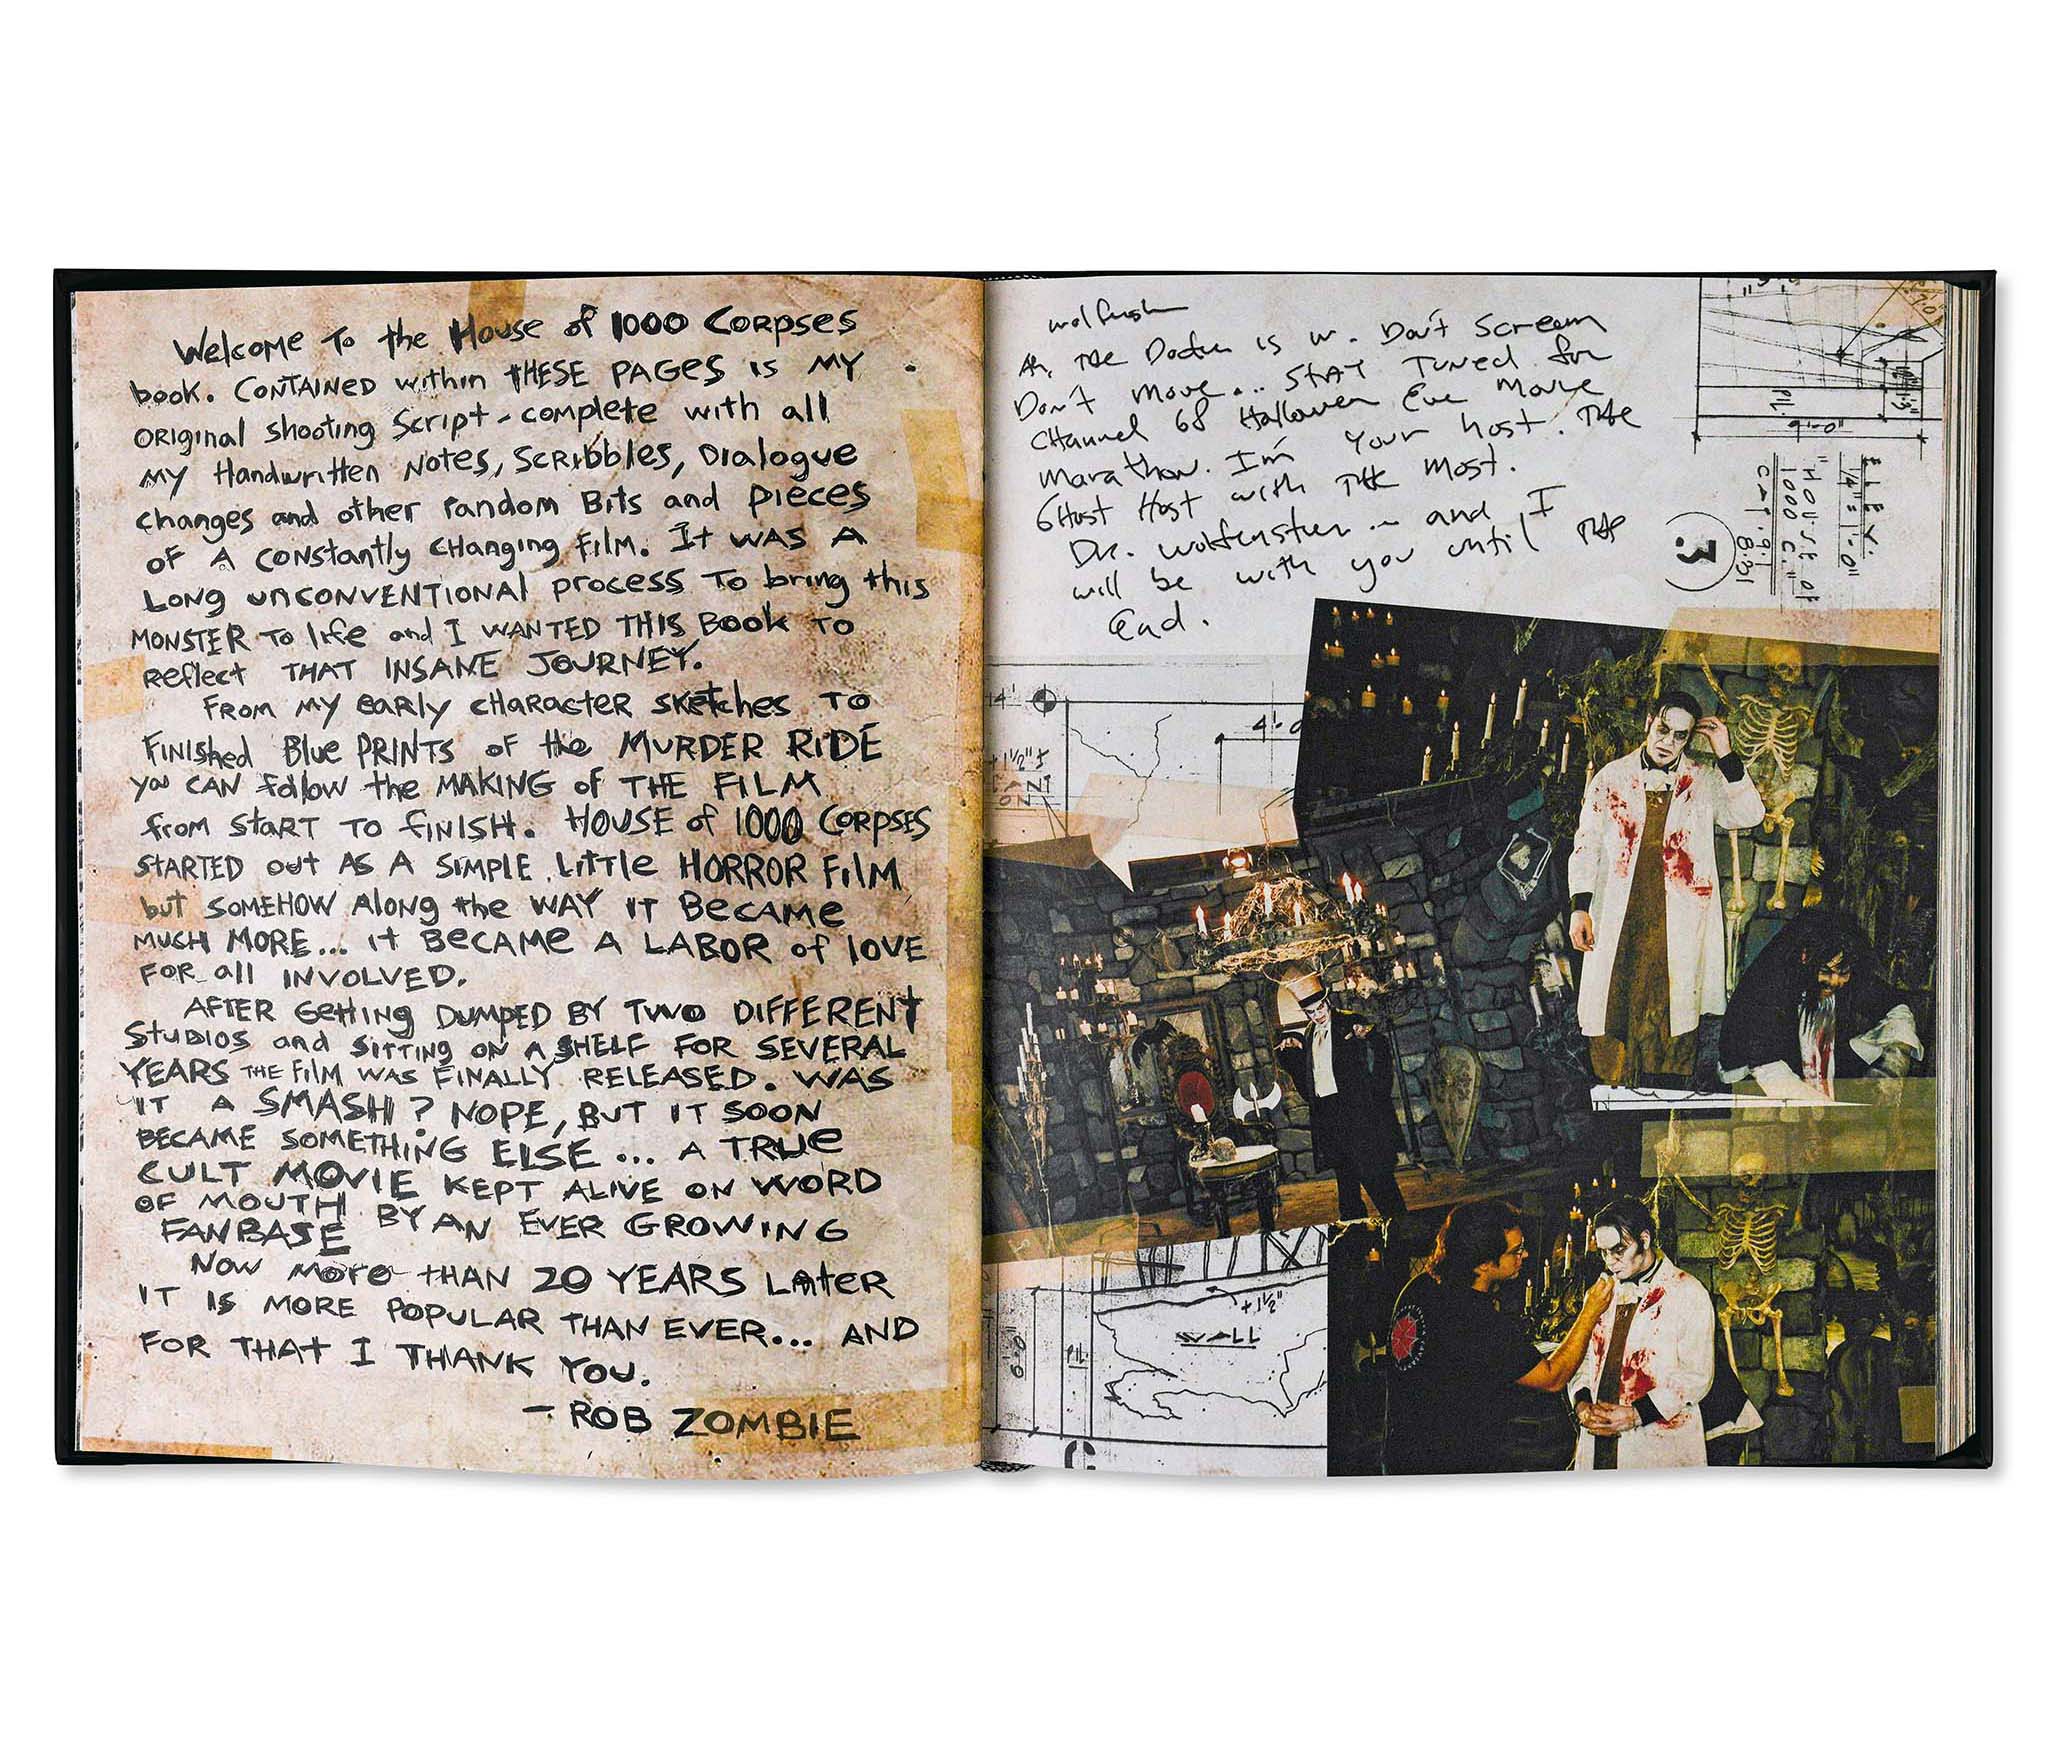 Welcome To the House of 1000 Corpses
book. CONTAINED within THESE PAGES is MY
ORIGINAL Shooting Script - complete with all
MY Handwritten NOTES, SCRIBBLES, DIALOGUE
Changes and other random Bits and pieces
OF A CONSTANTLY CHANGING FILM. IT WAS A
LONG UNCONVENTIONAL process TO bring this
MONSTER TO life and I WANTED THIS BOOK TO
Reflect THAT INSANE JOURNEY.
FROM MY early CHARACTER sketches TO
FINISHED Blue PRINTS OF the MURDER RIDE
you CAN follow the MAKING of THE FILM
from START TO FINISH. HOUSE of 1000 CORPSES
STARTED out AS A SIMPLE little HORROR FILM
but SOMEHOW Along the WAY IT BECAME
MUCH MORE... it BECAME A LABOR of lOVE
FOR all INVOLVED.
AFTER GETTING DUMPED BY TWO DIFFERENT
STUDIOS and SITTING ON A SHELF FOR SEVERAL
YEARS THE FILM WAS FINALLY RELEASED. WAS
IT A SMASH? NOPE, BUT IT SOON
BECAME SOMETHING ELSE... A TRUE
CULT MOVIE KEPT ALIVE ON WORD
OF MOUTH BY AN EVER GROWING
FANBASE
NOW MORE THAN 20 YEARS LATER
IT IS MORE POPULAR THAN EVER... AND
FOR THAT I THANK YOU.
- ROB ZOMBIE
Ah, THE Doctor is in. Don't Scream
Don't Move... STAY TUNED for
CHannel 68 Halloween Eve Movie
Marathon. I'm Your host. THE
GHost Host with THE Most.
Dr. Wolfenstein... and I
will be with you until THE
End.
9'-0"
PIL.
ELEV.
1/4"=1'-0"
"HOUSE OF
1000 C."
.3
14'
4'-0"
+1 1/2"
+1 1/2"
WALL
PIL.
C